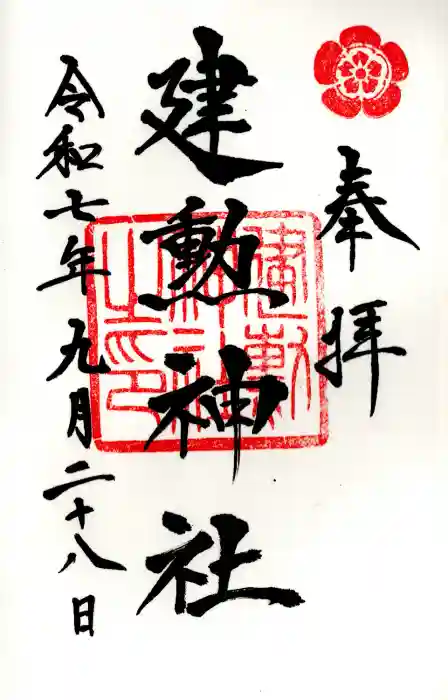 奉拝
建勲神社
建勲神社之印
令和七年九月二十八日